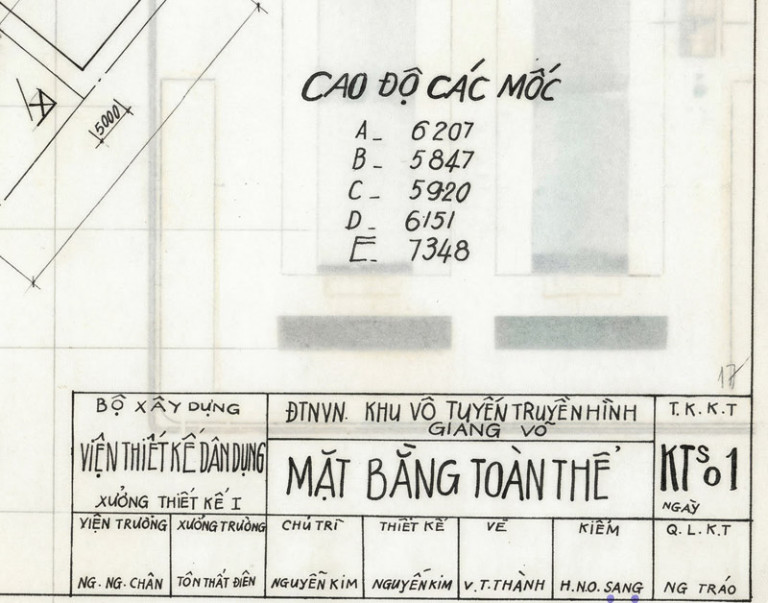 5000
CAO ĐỘ CÁC MỐC
A_ 6207
B_ 5847
C_ 5920
D_ 6151
E_ 7348
17
BỘ XÂY DỰNG
VIỆN THIẾT KẾ DÂN DỤNG
XƯỞNG THIẾT KẾ I
ĐTNVN. KHU VÔ TUYẾN TRUYỀN HÌNH
GIANG VÕ
MẶT BẰNG TOÀN THỂ
T.K.K.T
KT SỐ 1
NGÀY
VIỆN TRƯỞNG
NG. NG. CHÂN
XƯỞNG TRƯỞNG
TÔN THẤT ĐIỀN
CHỦ TRÌ
NGUYỄN KIM
THIẾT KẾ
NGUYỄN KIM
VẼ
V.T.THÀNH
KIỂM
H.N.O. SANG
Q.L.K.T
NG TRÁO